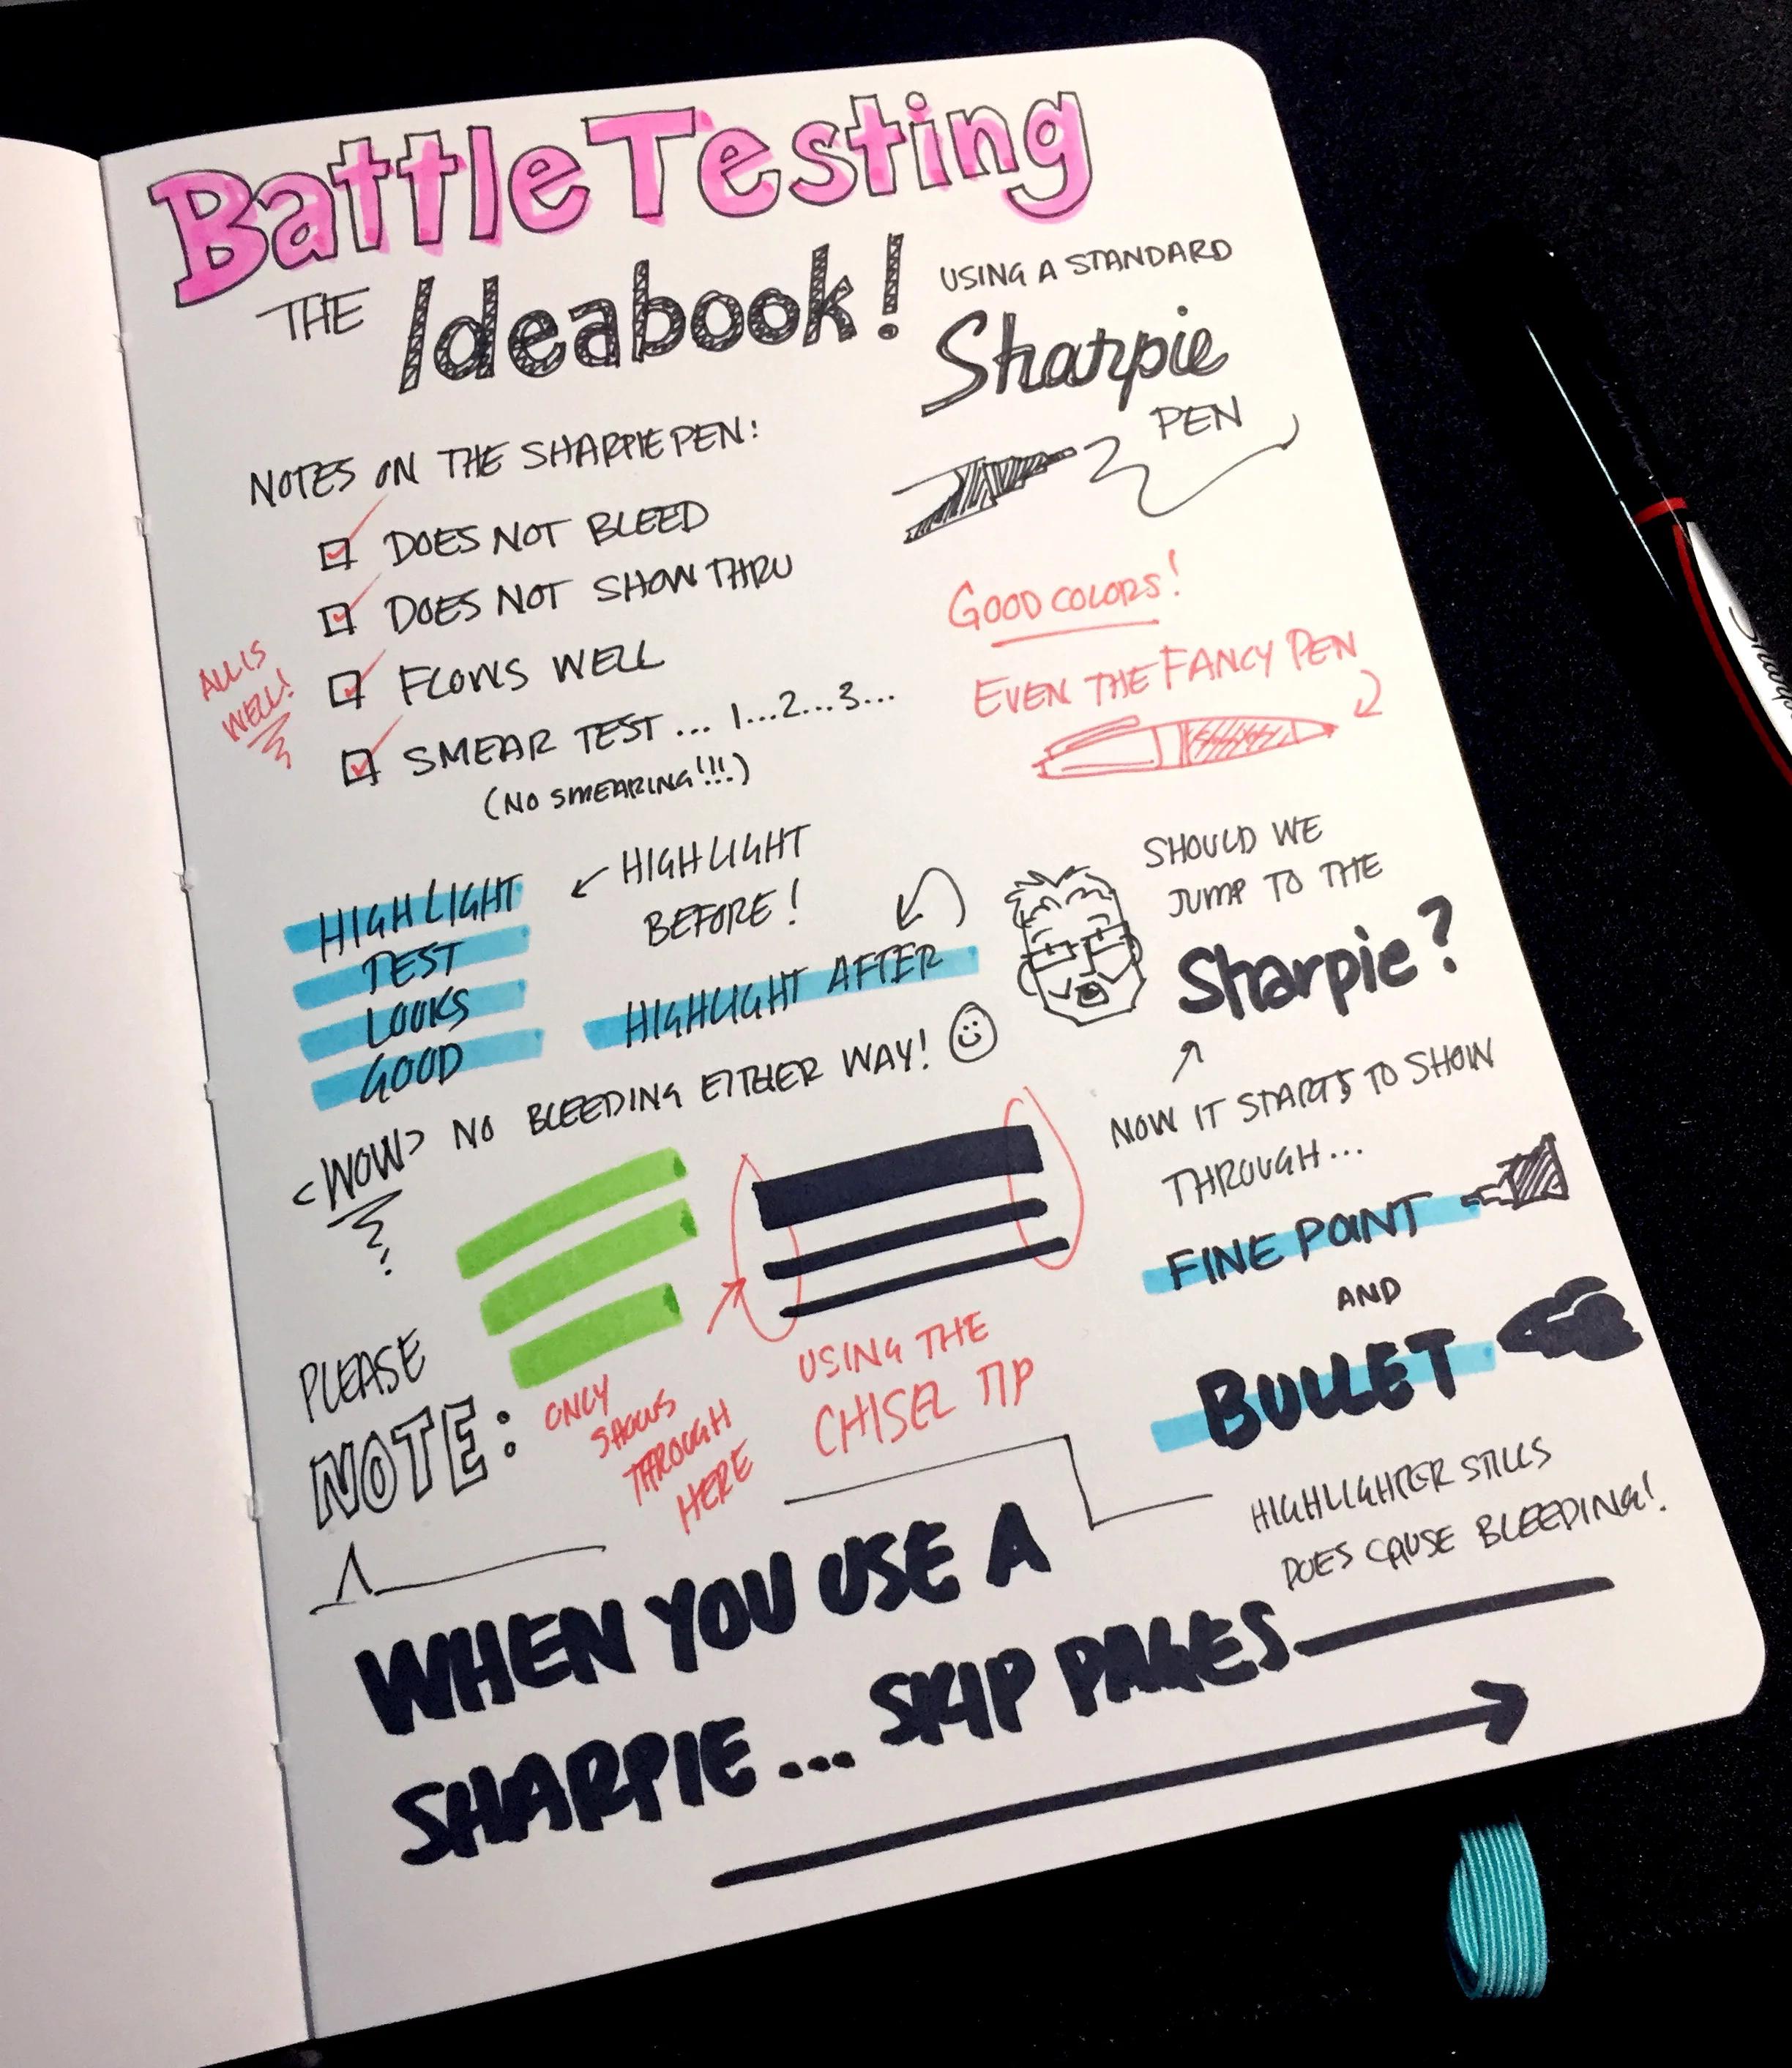 Battle Testing
THE Ideabook!
USING A STANDARD
Sharpie
PEN
NOTES ON THE SHARPIE PEN:
DOES NOT BLEED
DOES NOT SHOW THRU
FLOWS WELL
SMEAR TEST... 1...2...3...
(NO SMEARING!!!)
ALL IS
WELL!
GOOD COLORS!
EVEN THE FANCY PEN
HIGHLIGHT
TEST
LOOKS
GOOD
HIGHLIGHT
BEFORE!
HIGHLIGHT AFTER
<WOW> NO BLEEDING EITHER WAY!
SHOULD WE
JUMP TO THE
Sharpie?
NOW IT STARTS TO SHOW
THROUGH...
FINE POINT
AND
BULLET
HIGHLIGHTER STILLS
DOES CAUSE BLEEDING!
ONLY
SHOWS
THROUGH
HERE
USING THE
CHISEL TIP
PLEASE
NOTE:
WHEN YOU USE A
SHARPIE... SKIP PAGES